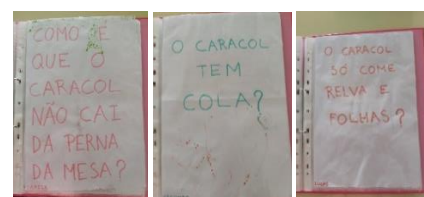 COMO É
QUE O
CARACOL
NÃO CAI
DA PERNA
DA MESA?
O CARACOL
TEM
COLA?
O CARACOL
SÓ COME
RELVA E
FOLHAS?